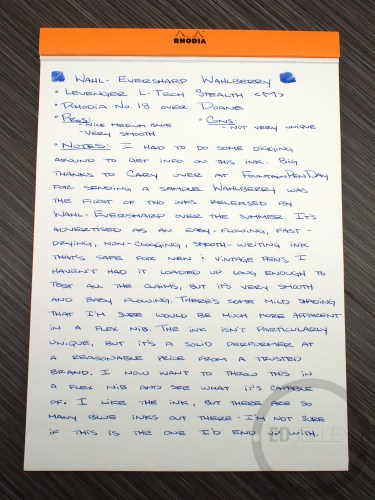 RHODIA
WAHL-EVERSHARP WAHLBERRY
• LEVENGER L-TECH STEALTH <M>
• RHODIA NO. 18 OVER DOANE
• PROS:
- NICE MEDIUM BLUE
- VERY SMOOTH
• CONS:
- NOT VERY UNIQUE
• NOTES: I HAD TO DO SOME DIGGING
AROUND TO GET INFO ON THIS INK. BIG
THANKS TO CARY OVER AT FOUNTAINPENDAY
FOR SENDING A SAMPLE. WAHLBERRY WAS
THE FIRST OF TWO INKS RELEASED BY
WAHL-EVERSHARP OVER THE SUMMER. IT'S
ADVERTISED AS AN EASY-FLOWING, FAST-
DRYING, NON-CLOGGING, SMOOTH-WRITING INK
THAT'S SAFE FOR NEW & VINTAGE PENS. I
HAVEN'T HAD IT LOADED UP LONG ENOUGH TO
TEST ALL THE CLAIMS, BUT IT'S VERY SMOOTH
AND EASY FLOWING. THERE'S SOME MILD SHADING
THAT I'M SURE WOULD BE MUCH MORE APPARENT
IN A FLEX NIB. THE INK ISN'T PARTICULARLY
UNIQUE, BUT IT'S A SOLID PERFORMER AT
A REASONABLE PRICE FROM A TRUSTED
BRAND. I NOW WANT TO THROW THIS IN
A FLEX NIB AND SEE WHAT IT'S CAPABLE
OF. I LIKE THE INK, BUT THERE ARE SO
MANY BLUE INKS OUT THERE - I'M NOT SURE
IF THIS IS THE ONE I'D END UP WITH.